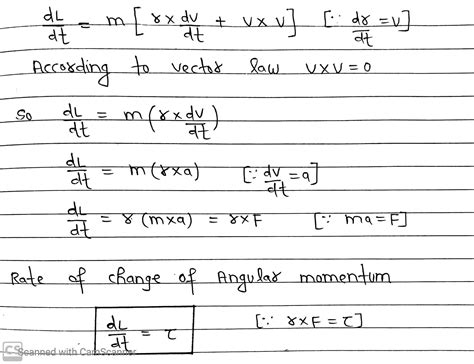 dL/dt = m[r×dv/dt + v×v] [∵ dr/dt = v]
According to vector law v×v=0
So dL/dt = m(r×dv/dt)
dL/dt = m(r×a) [∵ dv/dt = a]
dL/dt = r(m×a) = r×F [∵ ma=F]
Rate of change of Angular momentum
dL/dt = τ [∵ r×F = τ]
CS Scanned with CamScanner